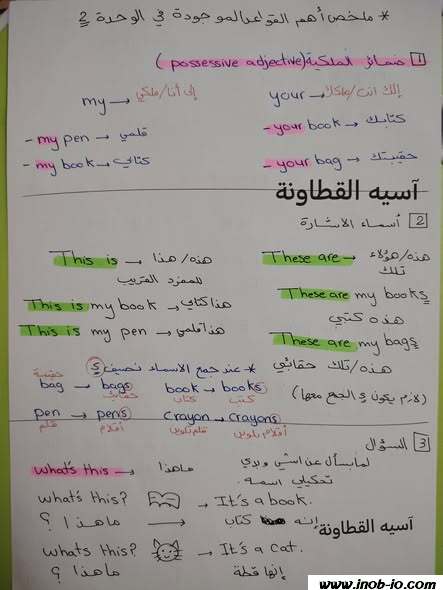 * ملخص أهم القواعد الموجودة في الوحدة 2
1 ضمائر الملكية (possessive adjective)
إلي أنا/ملكي ← my
إلك انت/ملكك ← your
- my pen → قلمي
- your book → كتابك
- my book → كتابي
- your bag → حقيبتك
آسيه القطاونة
2 أسماء الاشارة
This is → هذه/هذا
للمفرد القريب
These are → هذه/هؤلاء
تلك
This is my book → هذا كتابي
These are my books
هذه كتبي
This is my pen → هذا قلمي
These are my bags
هذه/تلك حقائبي
(لازم يكون s الجمع معها)
* عند جمع الأسماء نضيف s
bag → bags
حقيبة حقائب
book → books
كتاب كتب
pen → pens
قلم أقلام
crayon → crayons
قلم تلوين أقلام تلوين
3 السؤال
what's this → ماهذا
لما بسأل عن اشي وبدي
تحكيلي اسمه
what's this? → It's a book.
ماهذا ؟ → إنه كتاب
آسيه القطاونة
whats this? → It's a cat.
ماهذا ؟ إنها قطة
www.inob-io.com